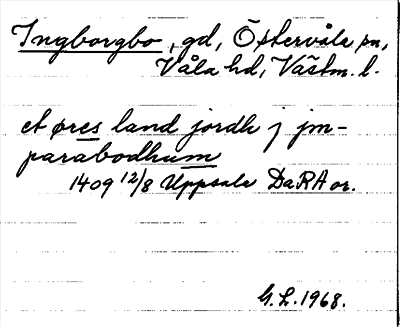 Ingborgbo, gd, Östervåla sn,
Våla hd, Västm. l.
et øres land jordh j jm-
parabodhum
1409 12/8 Uppsala DaRA or.
G. L. 1968.